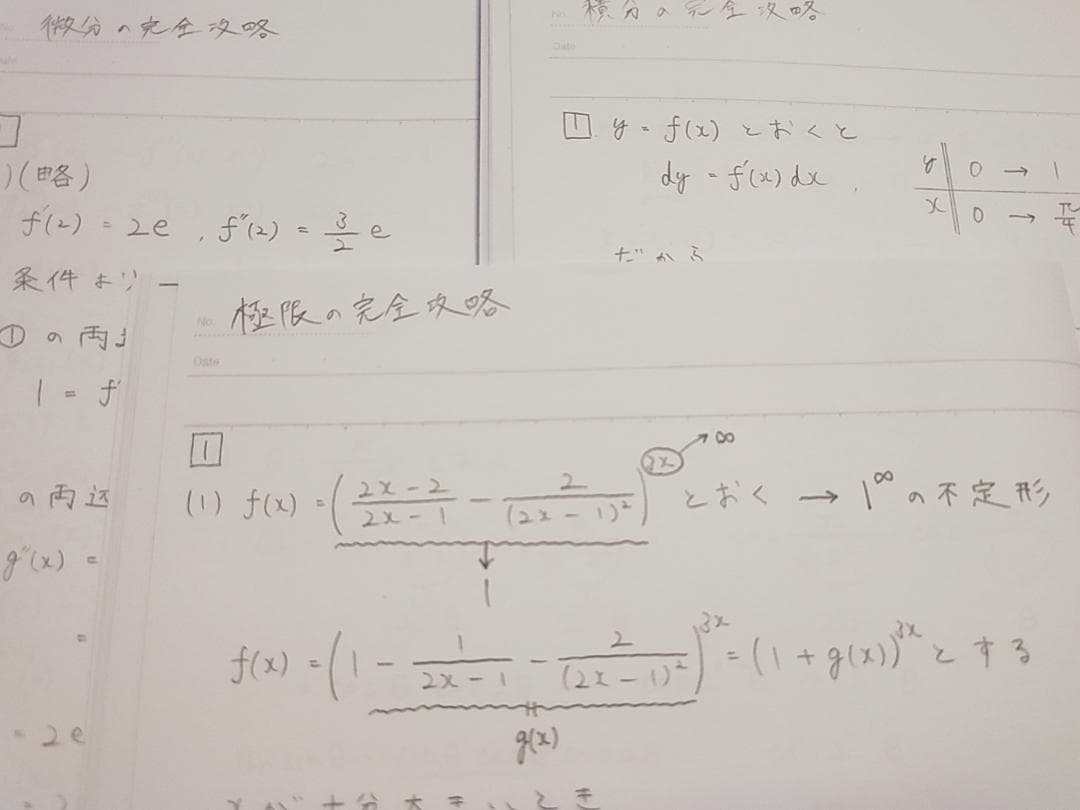 微分の完全攻略
(略)
f'(2) = 2e , f''(2) = 3/2 e
条件より
① の両
1 = f'
の両辺
g''(x) =
=
= 2e
No. 積分の完全攻略
Date
1 y = f(x) とおくと
dy = f'(x)dx ,
y | 0 → 1
x | 0 → π/4
だから
No. 極限の完全攻略
Date
1
(1) f(x) = ( (2x-2)/(2x-1) - 2/(2x-1)² )^3x とおく → 1^∞ の不定形
→ ∞
↓
1
f(x) = ( 1 - 1/(2x-1) - 2/(2x-1)² )^3x = (1 + g(x))^3x とする
g(x)
xが十分大きいとき